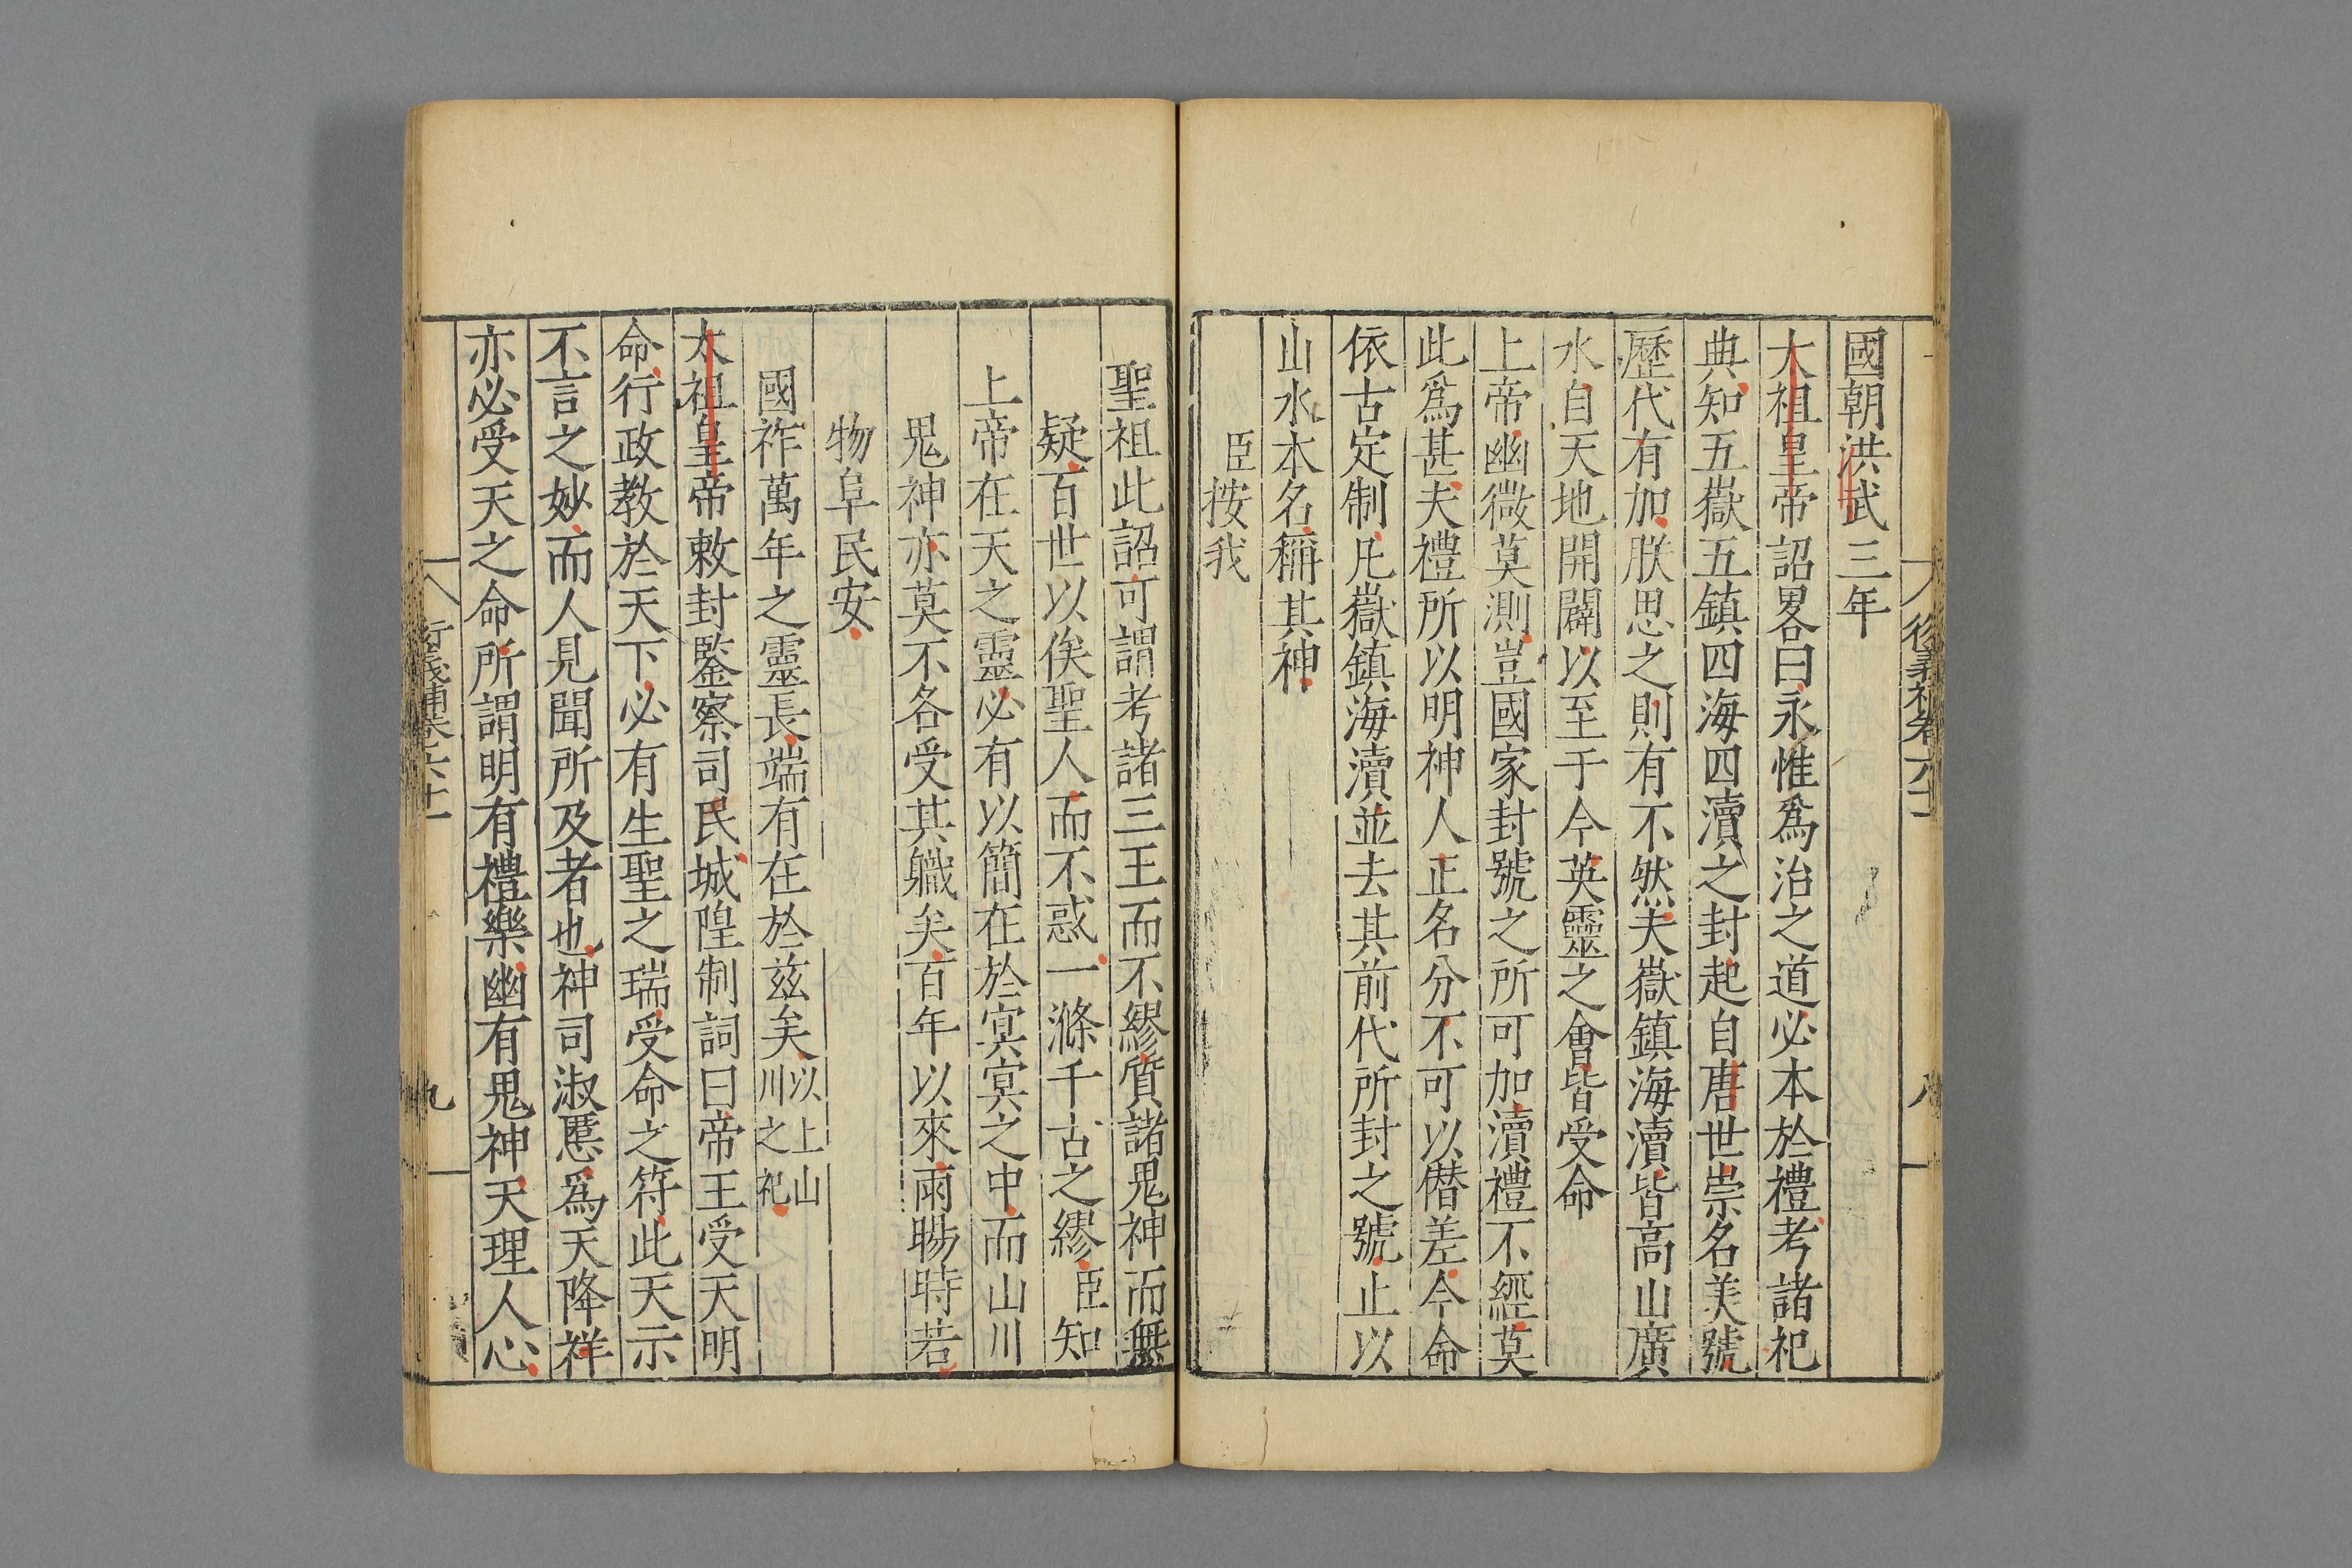 國朝洪武三年
太祖皇帝詔畧曰永惟爲治之道必本於禮考諸祀
典知五嶽五鎮四海四瀆之封起自唐世崇名美號
歷代有加朕思之則有不然夫嶽鎮海瀆皆高山廣
水自天地開闢以至于今英靈之會皆受命
上帝幽微莫測豈國家封號之所可加瀆禮不經莫
此爲甚夫禮所以明神人正名分不可以僭差今命
依古定制凡嶽鎮海瀆並去其前代所封之號止以
山水本名稱其神
臣按我
聖祖此詔可謂考諸三王而不繆質諸鬼神而無
疑百世以俟聖人而不惑一滌千古之繆臣知
上帝在天之靈必有以簡在於冥冥之中而山川
鬼神亦莫不各受其職矣百年以來雨暘時若
物阜民安
國祚萬年之靈長端有在於兹矣以上山川之祀
太祖皇帝敕封鑒察司民城隍制詞曰帝王受天明
命行政教於天下必有生聖之瑞受命之符此天示
不言之妙而人見聞所及者也神司淑慝爲天降祥
亦必受天之命所謂明有禮樂幽有鬼神天理人心
衍義補卷六十一
九